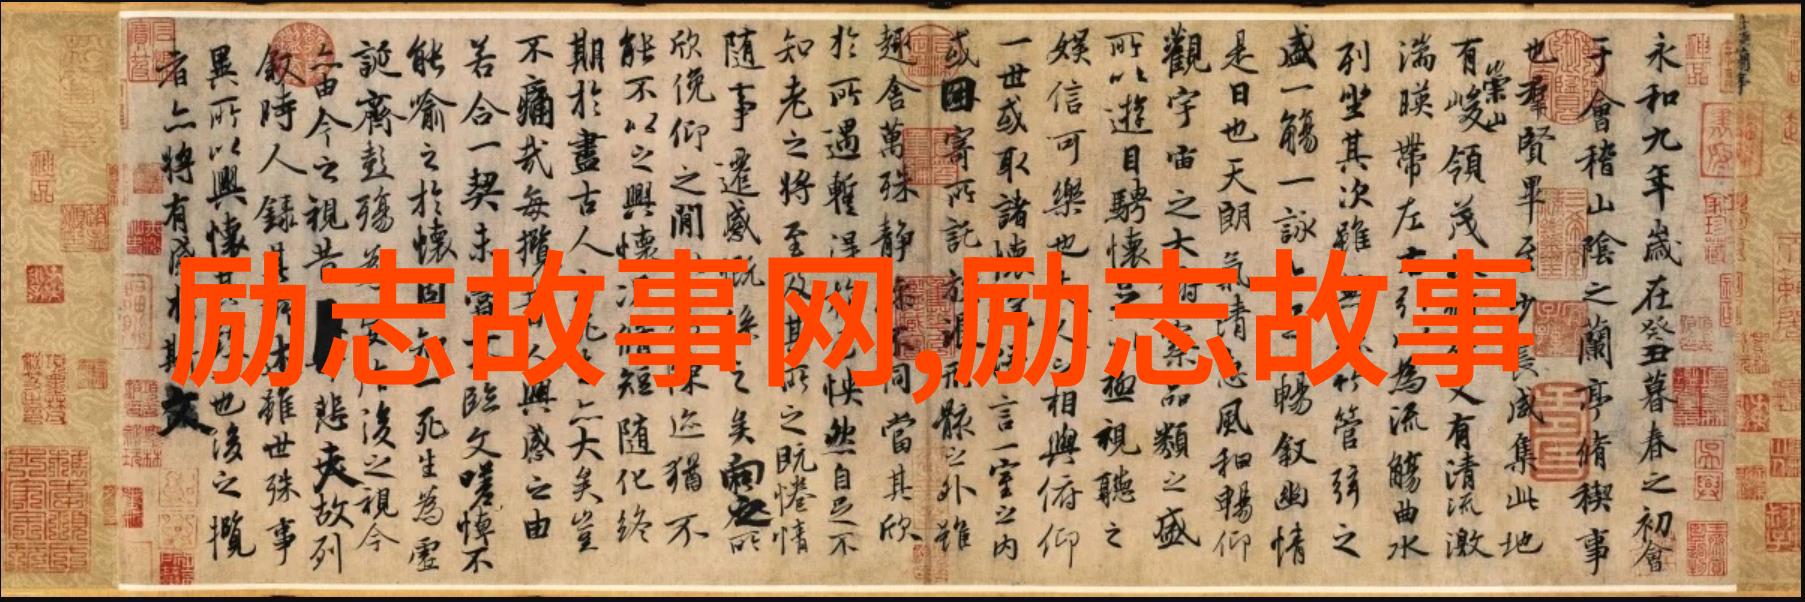 永和九年歲在癸丑暮春之初會
于會稽山陰之蘭亭脩稧事
也羣賢畢至少長咸集此地
有崇山峻領茂又有清流激
湍暎帶左右引為流觴曲水
列坐其次雖無竹管弦之
盛一觴一詠暢叙幽情
是日也天朗氣清惠風和暢仰
觀宇宙之大俯察品類之盛
所以遊目騁懷足極視聽之
娛信可樂也夫人之相與俯仰
一世或取諸懷言一室之內
或因寄所託放浪形骸之外雖
趣舍萬殊静不同當其欣
於所遇暫得怏然自足不
知老之將至及其所之既惓情
隨事遷感慨係之矣向之所
欣俛仰之閒陳迹猶不
能不以之興懷況脩短隨化終
期於盡古人死亦大矣豈
不痛哉每攬昔人興感之由
若合一契未嘗臨文嗟悼不
能喻之於懷固知一死生為虛
誕齊彭殤為後之視今
亦由今之視昔悲夫故列
叙時人錄其述雖世殊事
異所以興懷其也後之攬
者亦將有感於斯文
励志故事网,励志故事